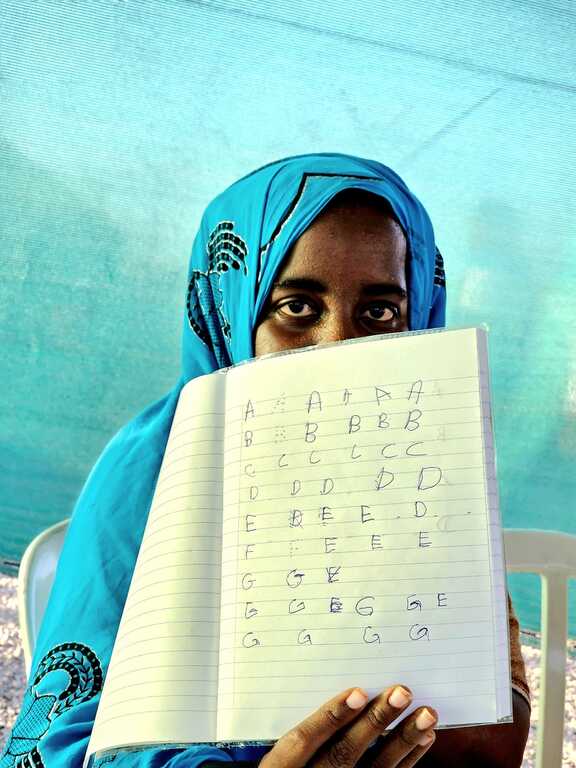 A A A A A A
B B B B B B
C C C C C C
D D D D D
E E E D
F F E E E
G G E
G G E G G E
G G G G